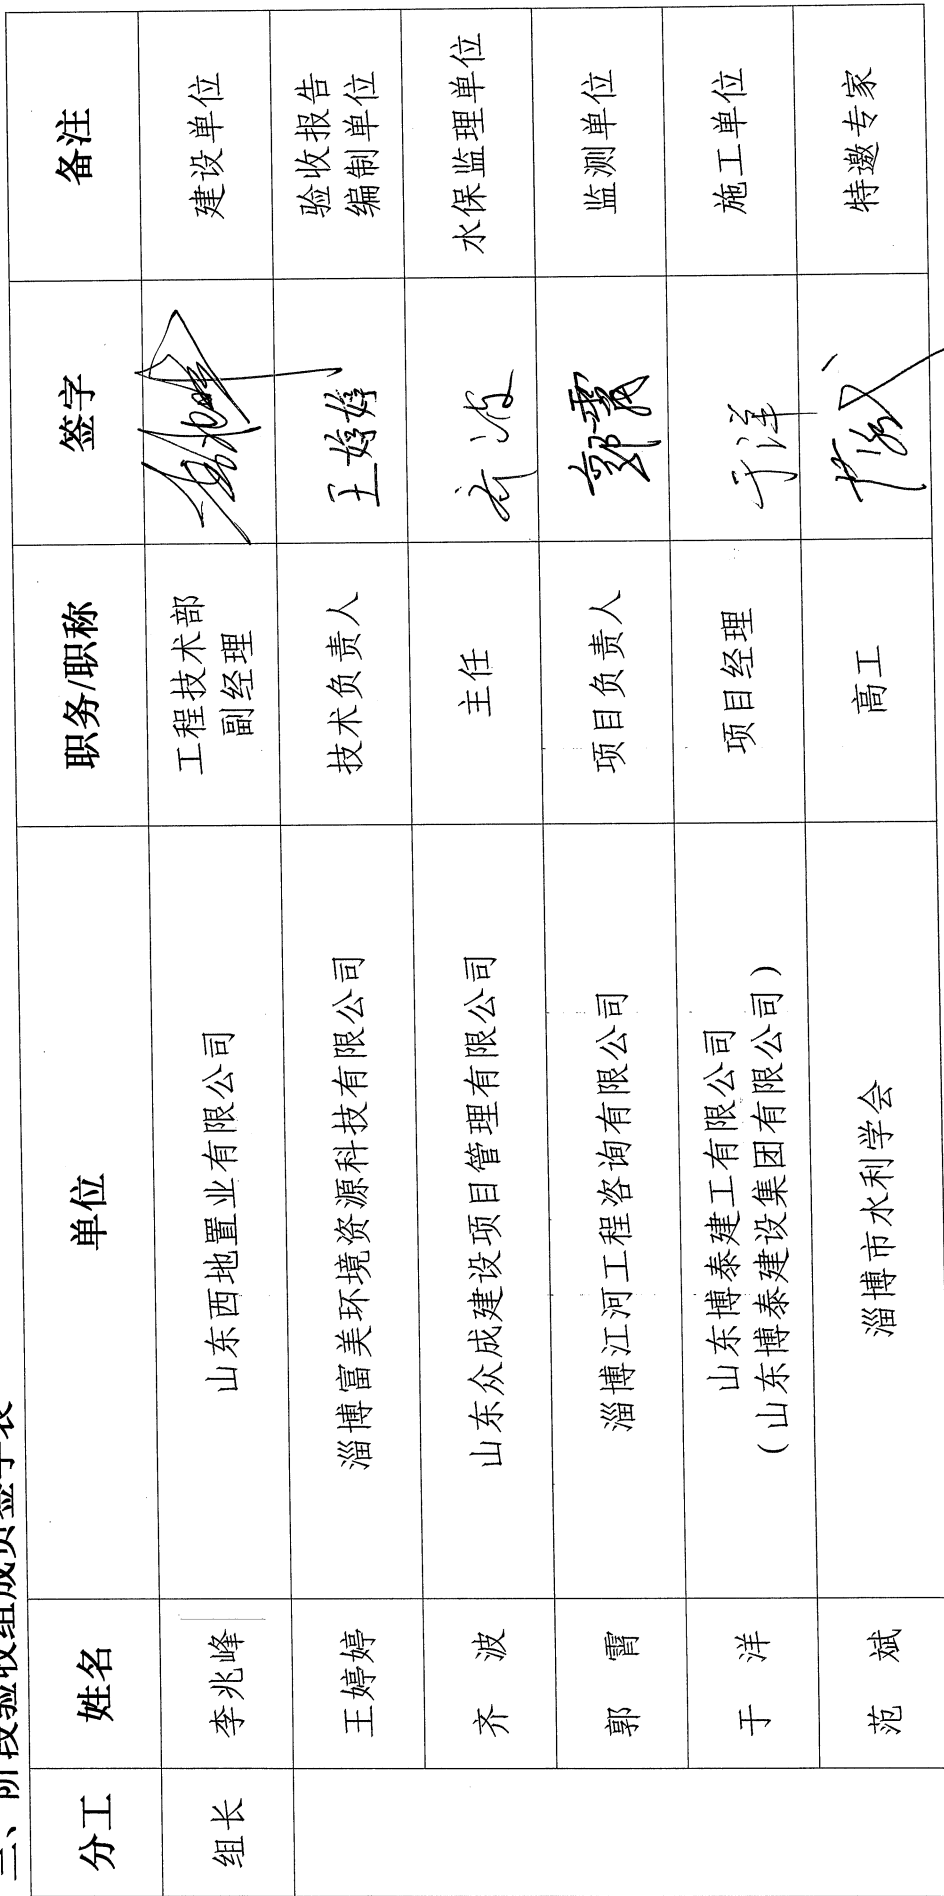 三、阶段验收组成员签字表
分工 姓名 单位 职务/职称 签字 备注
组长 李兆峰 山东西地置业有限公司 工程技术部 副经理 建设单位
王婷婷 淄博富美环境资源科技有限公司 技术负责人 王婷婷 验收报告 编制单位
齐 波 山东众成建设项目管理有限公司 主任 齐波 水保监理单位
郭 霄 淄博江河工程咨询有限公司 项目负责人 郭霄 监测单位
于 洋 山东博泰建工有限公司 (山东博泰建设集团有限公司) 项目经理 于洋 施工单位
范 斌 淄博市水利学会 高工 特邀专家